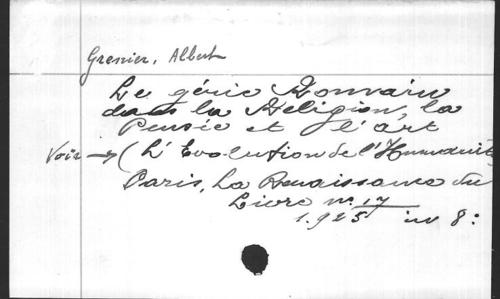 Grenier, Albert
Le génie Romain
dans la Religion, la
Pensée et l'art
Voir → (L'Evolution de l'Humanité
Paris, La Renaissance du
Livre no. 17
1.925 in 8: